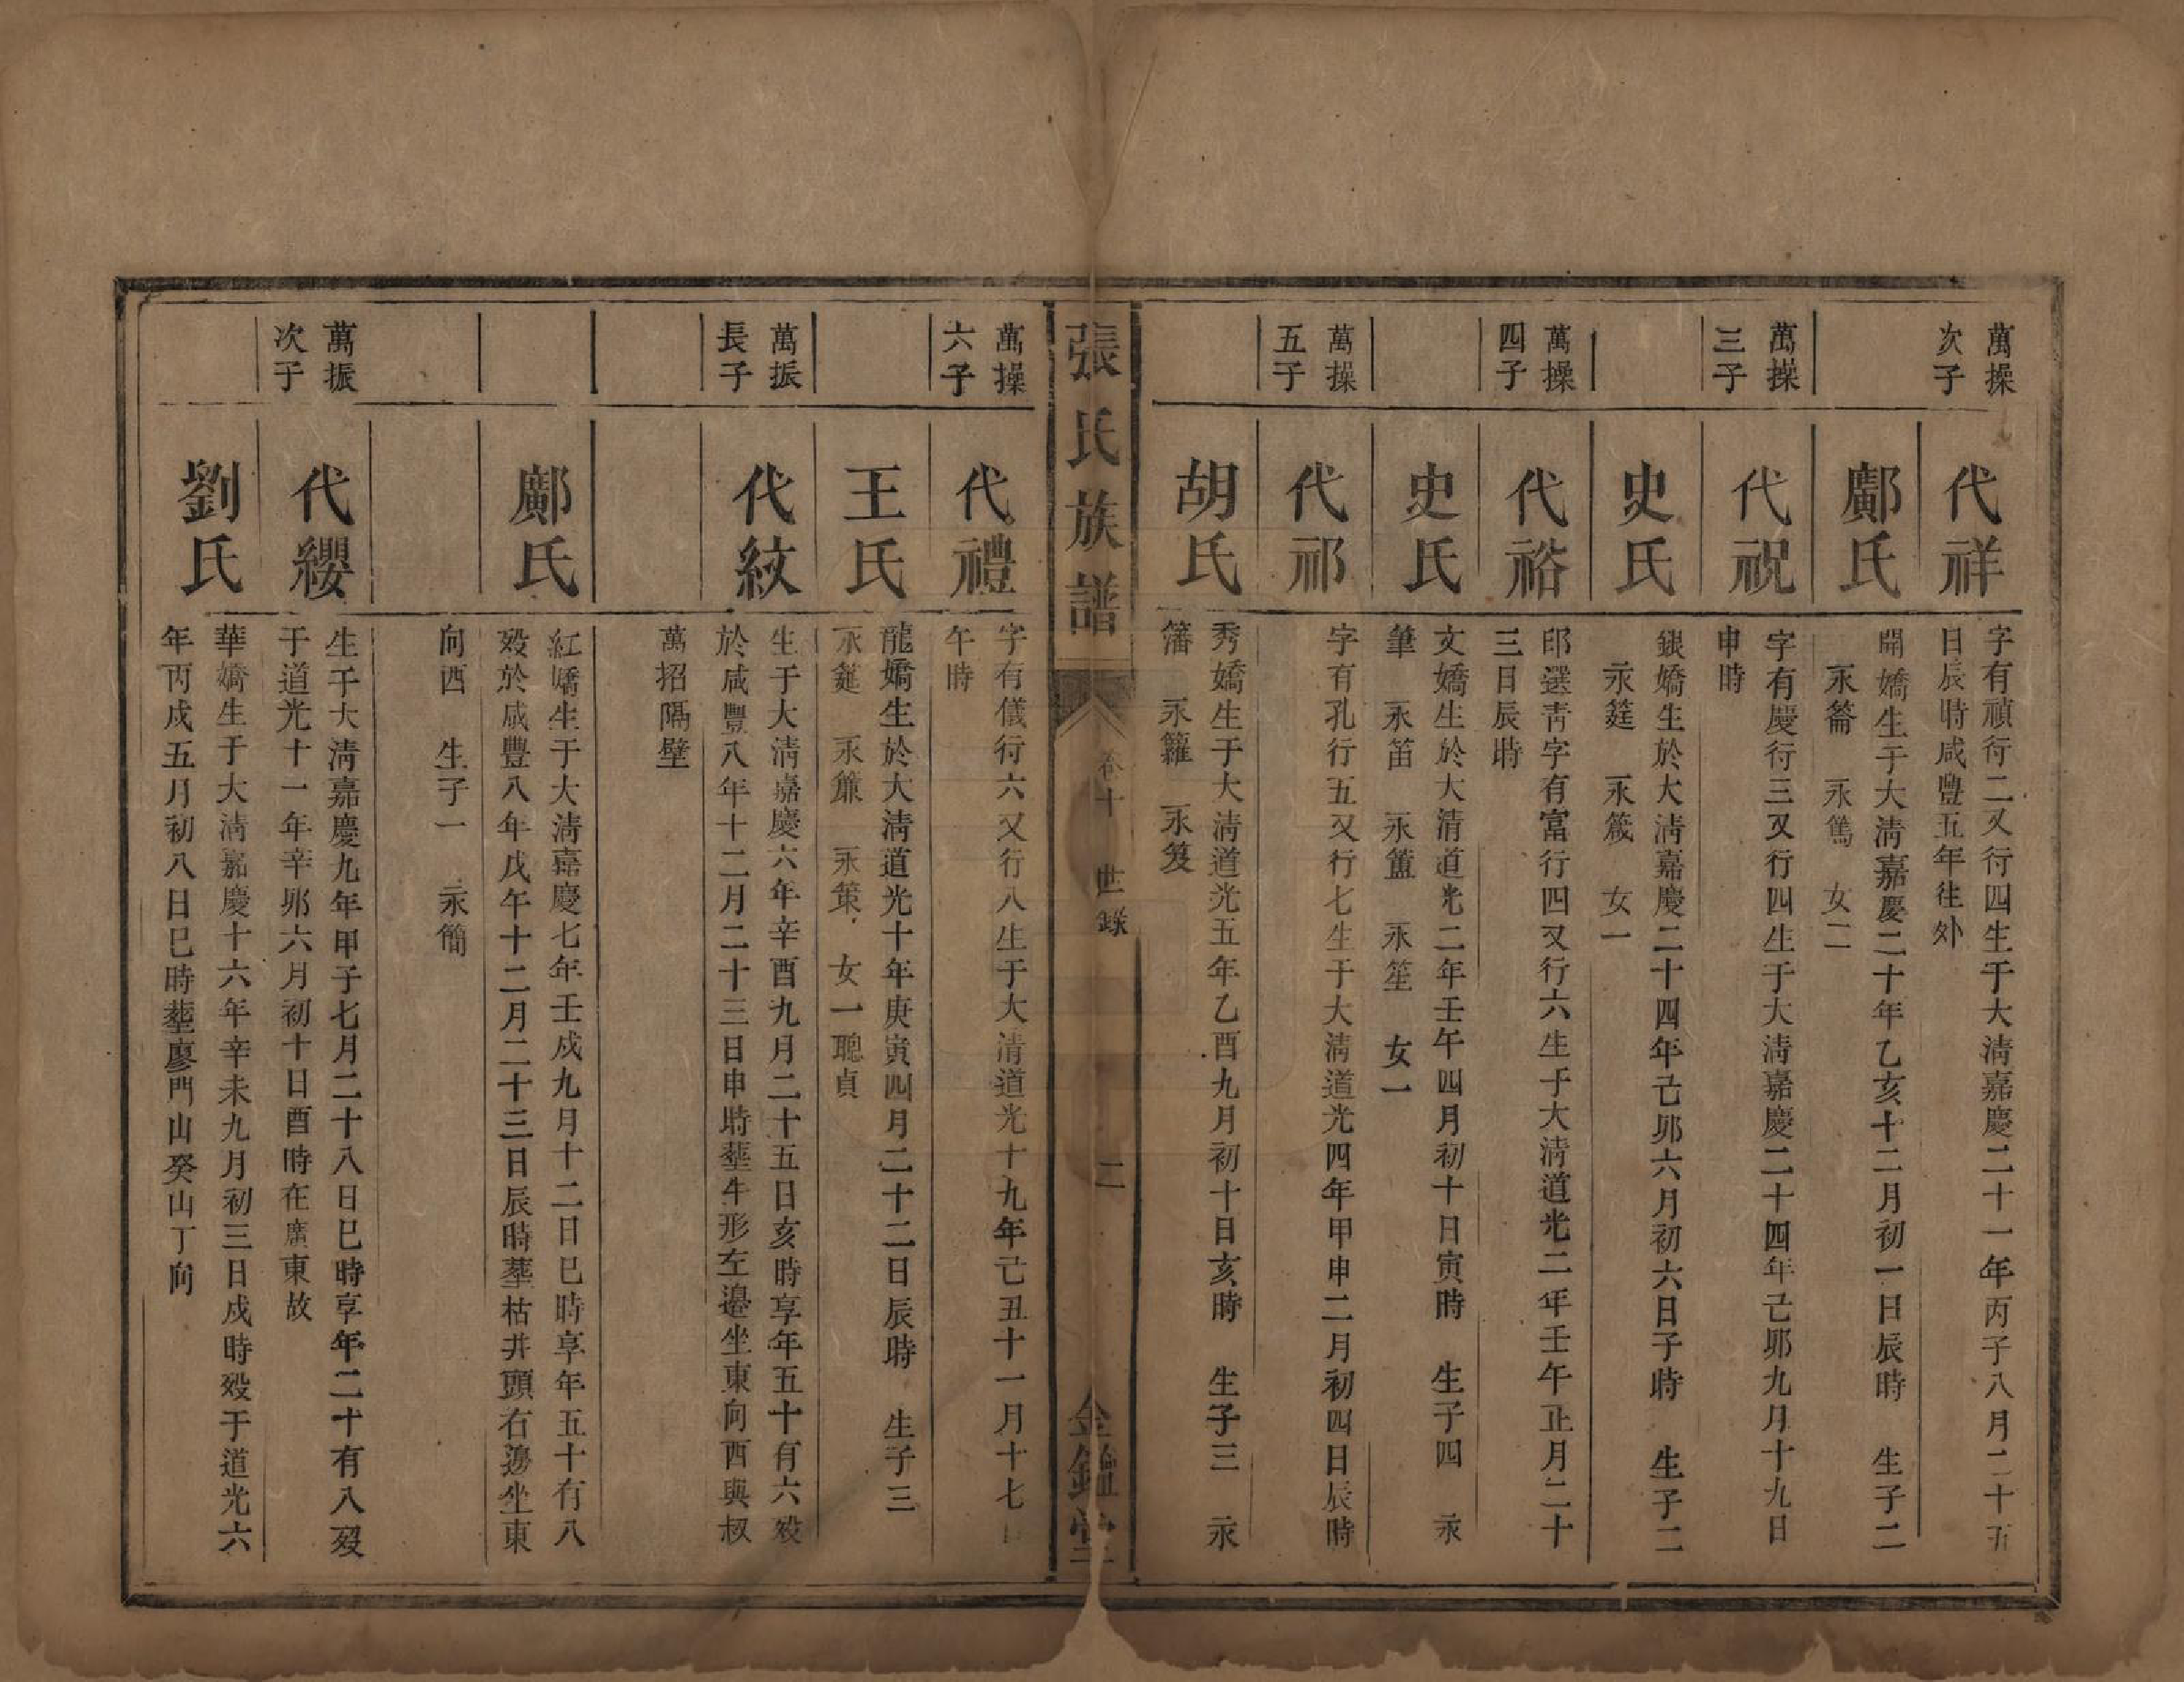 萬操
次子
代祥
字有禎行二又行四生于大淸嘉慶二十一年丙子八月二十五
日辰時咸豐五年往外
鄺氏
開嬌生于大淸嘉慶二十年乙亥十二月初一日辰時 生子二
永籥 永篤 女二
萬操
三子
代祝
字有慶行三又行四生于大淸嘉慶二十四年己卯九月十九日
申時
史氏
銀嬌生於大淸嘉慶二十四年己卯六月初六日子時 生子二
永筳 永箴 女一
萬操
四子
代裕
郎選靑字有富行四又行六生于大淸道光二年壬午正月二十
三日辰時
史氏
文嬌生於大清道光二年壬午四月初十日寅時 生子四 永
筆 永笛 永簠 永笙 女一
萬操
五子
代祁
字有孔行五又行七生于大淸道光四年甲申二月初四日辰時
胡氏
秀嬌生于大淸道光五年乙酉九月初十日亥時 生子三 永
籓 永籬 永笈
張氏族譜
卷十 世錄
二
金鑑堂
萬操
六子
代禮
字有儀行六又行八生于大清道光十九年己丑十一月十七日
午時
王氏
龍嬌生於大淸道光十年庚寅四月二十二日辰時 生子三
永筵 永簾 永策 女一聰貞
萬振
長子
代紋
生于大淸嘉慶六年辛酉九月二十五日亥時享年五十有六歿
於咸豐八年十二月二十三日申時塟牛形左邉坐東向西與叔
萬招隔壁
鄺氏
紅嬌生于大淸嘉慶七年壬戌九月十二日巳時享年五十有八
歿於咸豐八年戊午十二月二十三日辰時塟枯井頭右邊坐東
向西 生子一 永簡
萬振
次子
代纓
生于大淸嘉慶九年甲子七月二十八日巳時享年二十有八歿
于道光十一年辛卯六月初十日酉時在廣東故
劉氏
華嬌生于大淸嘉慶十六年辛未九月初三日戌時歿于道光六
年丙戌五月初八日巳時塟廖門山癸山丁向